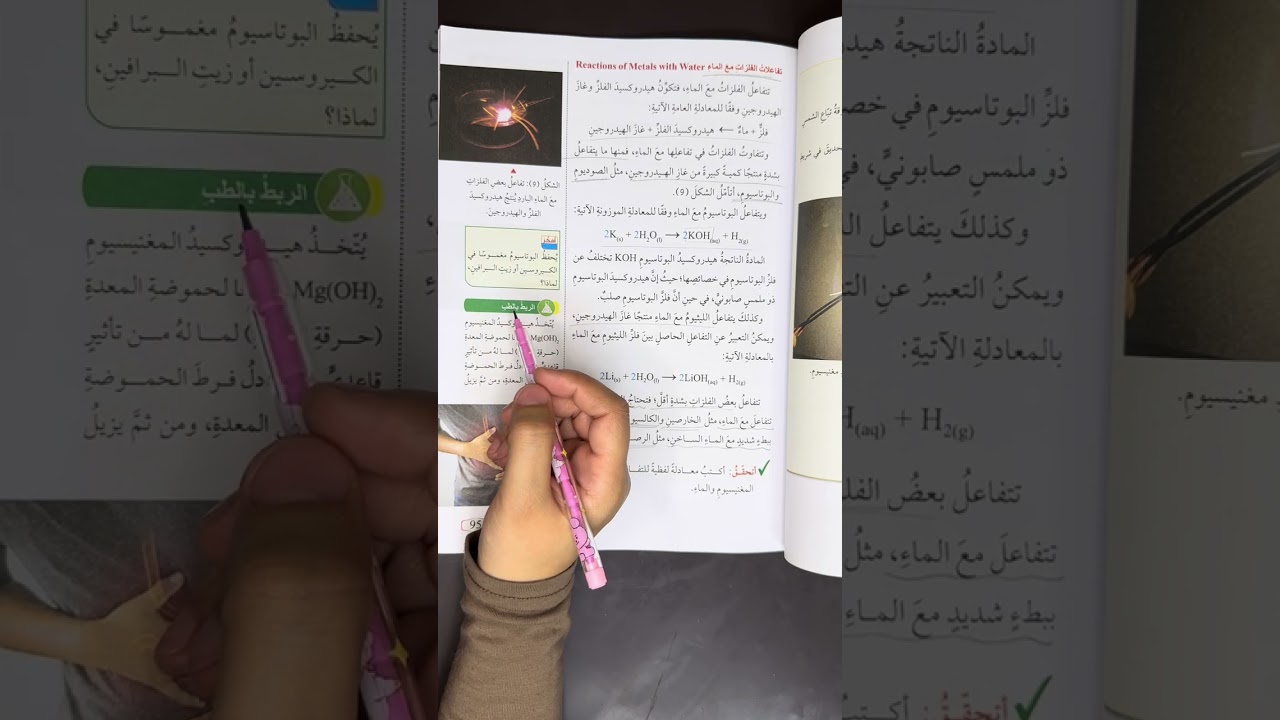 تفاعلاتُ الفلزات معَ الماءِ Reactions of Metals with Water
تتفاعلُ الفلزاتُ معَ الماءِ، فتكوّنُ هيدروكسيدَ الفلزِّ وغازَ
الهيدروجينِ وفقًا للمعادلةِ العامةِ الآتيةِ:
فلزٌّ + ماءٌ ⟵ هيدروكسيدَ الفلزِّ + غازَ الهيدروجينِ
وتتفاوتُ الفلزاتُ في تفاعلِها معَ الماءِ، فمنها ما يتفاعلُ
بشدةٍ منتجًا كميةً كبيرةً من غازِ الهيدروجينِ، مثلُ الصوديومِ
والبوتاسيومِ، أتأمّلُ الشكلَ (9).
ويتفاعلُ البوتاسيومُ معَ الماءِ وفقًا للمعادلةِ الموزونةِ الآتيةِ:
2K(s) + 2H2O(l) → 2KOH(aq) + H2(g)
المادةُ الناتجةُ هيدروكسيدُ البوتاسيومِ KOH تختلفُ عن
فلزِّ البوتاسيومِ في خصائصِها؛ حيثُ إنَّ هيدروكسيدَ البوتاسيومِ
ذو ملمسٍ صابونيٍّ، في حينِ أنَّ فلزَّ البوتاسيومِ صلبٌ.
وكذلكَ يتفاعلُ الليثيومُ معَ الماءِ منتجًا غازَ الهيدروجينِ،
ويمكنُ التعبيرُ عنِ التفاعلِ الحاصلِ بينَ فلزِّ الليثيومِ معَ الماءِ
بالمعادلةِ الآتيةِ:
2Li(s) + 2H2O(l) → 2LiOH(aq) + H2(g)
تتفاعلُ بعضُ الفلزاتِ بشدةٍ أقلَّ؛ فتحتاجُ
تتفاعلَ معَ الماءِ، مثلُ الخارصينِ والكالسيو
ببطءٍ شديدٍ معَ الماءِ الساخنِ، مثلُ الرص
✓ أتحقّقُ: أكتبُ معادلةً لفظيةً للتفا
المغنيسيومِ والماءِ.
الشكلُ (9): تفاعلُ بعضِ الفلزاتِ
معَ الماءِ الباردِ يُنتجُ هيدروكسيدَ
الفلزِّ والهيدروجينَ.
أفكّر
يُحفظُ البوتاسيومُ مغموسًا في
الكيروسينِ أو زيتِ البرافينِ،
لماذا؟
الربطُ بالطبِ
يُتّخذُ هيدروكسيدُ المغنيسيومِ
Mg(OH)2 لحموضةِ المعدةِ
(حرقةِ) لما لهُ من تأثيرٍ
قاعديٍّ دلُ فرطَ الحموضةِ
المعدةِ، ومن ثمَّ يزيلُ
95